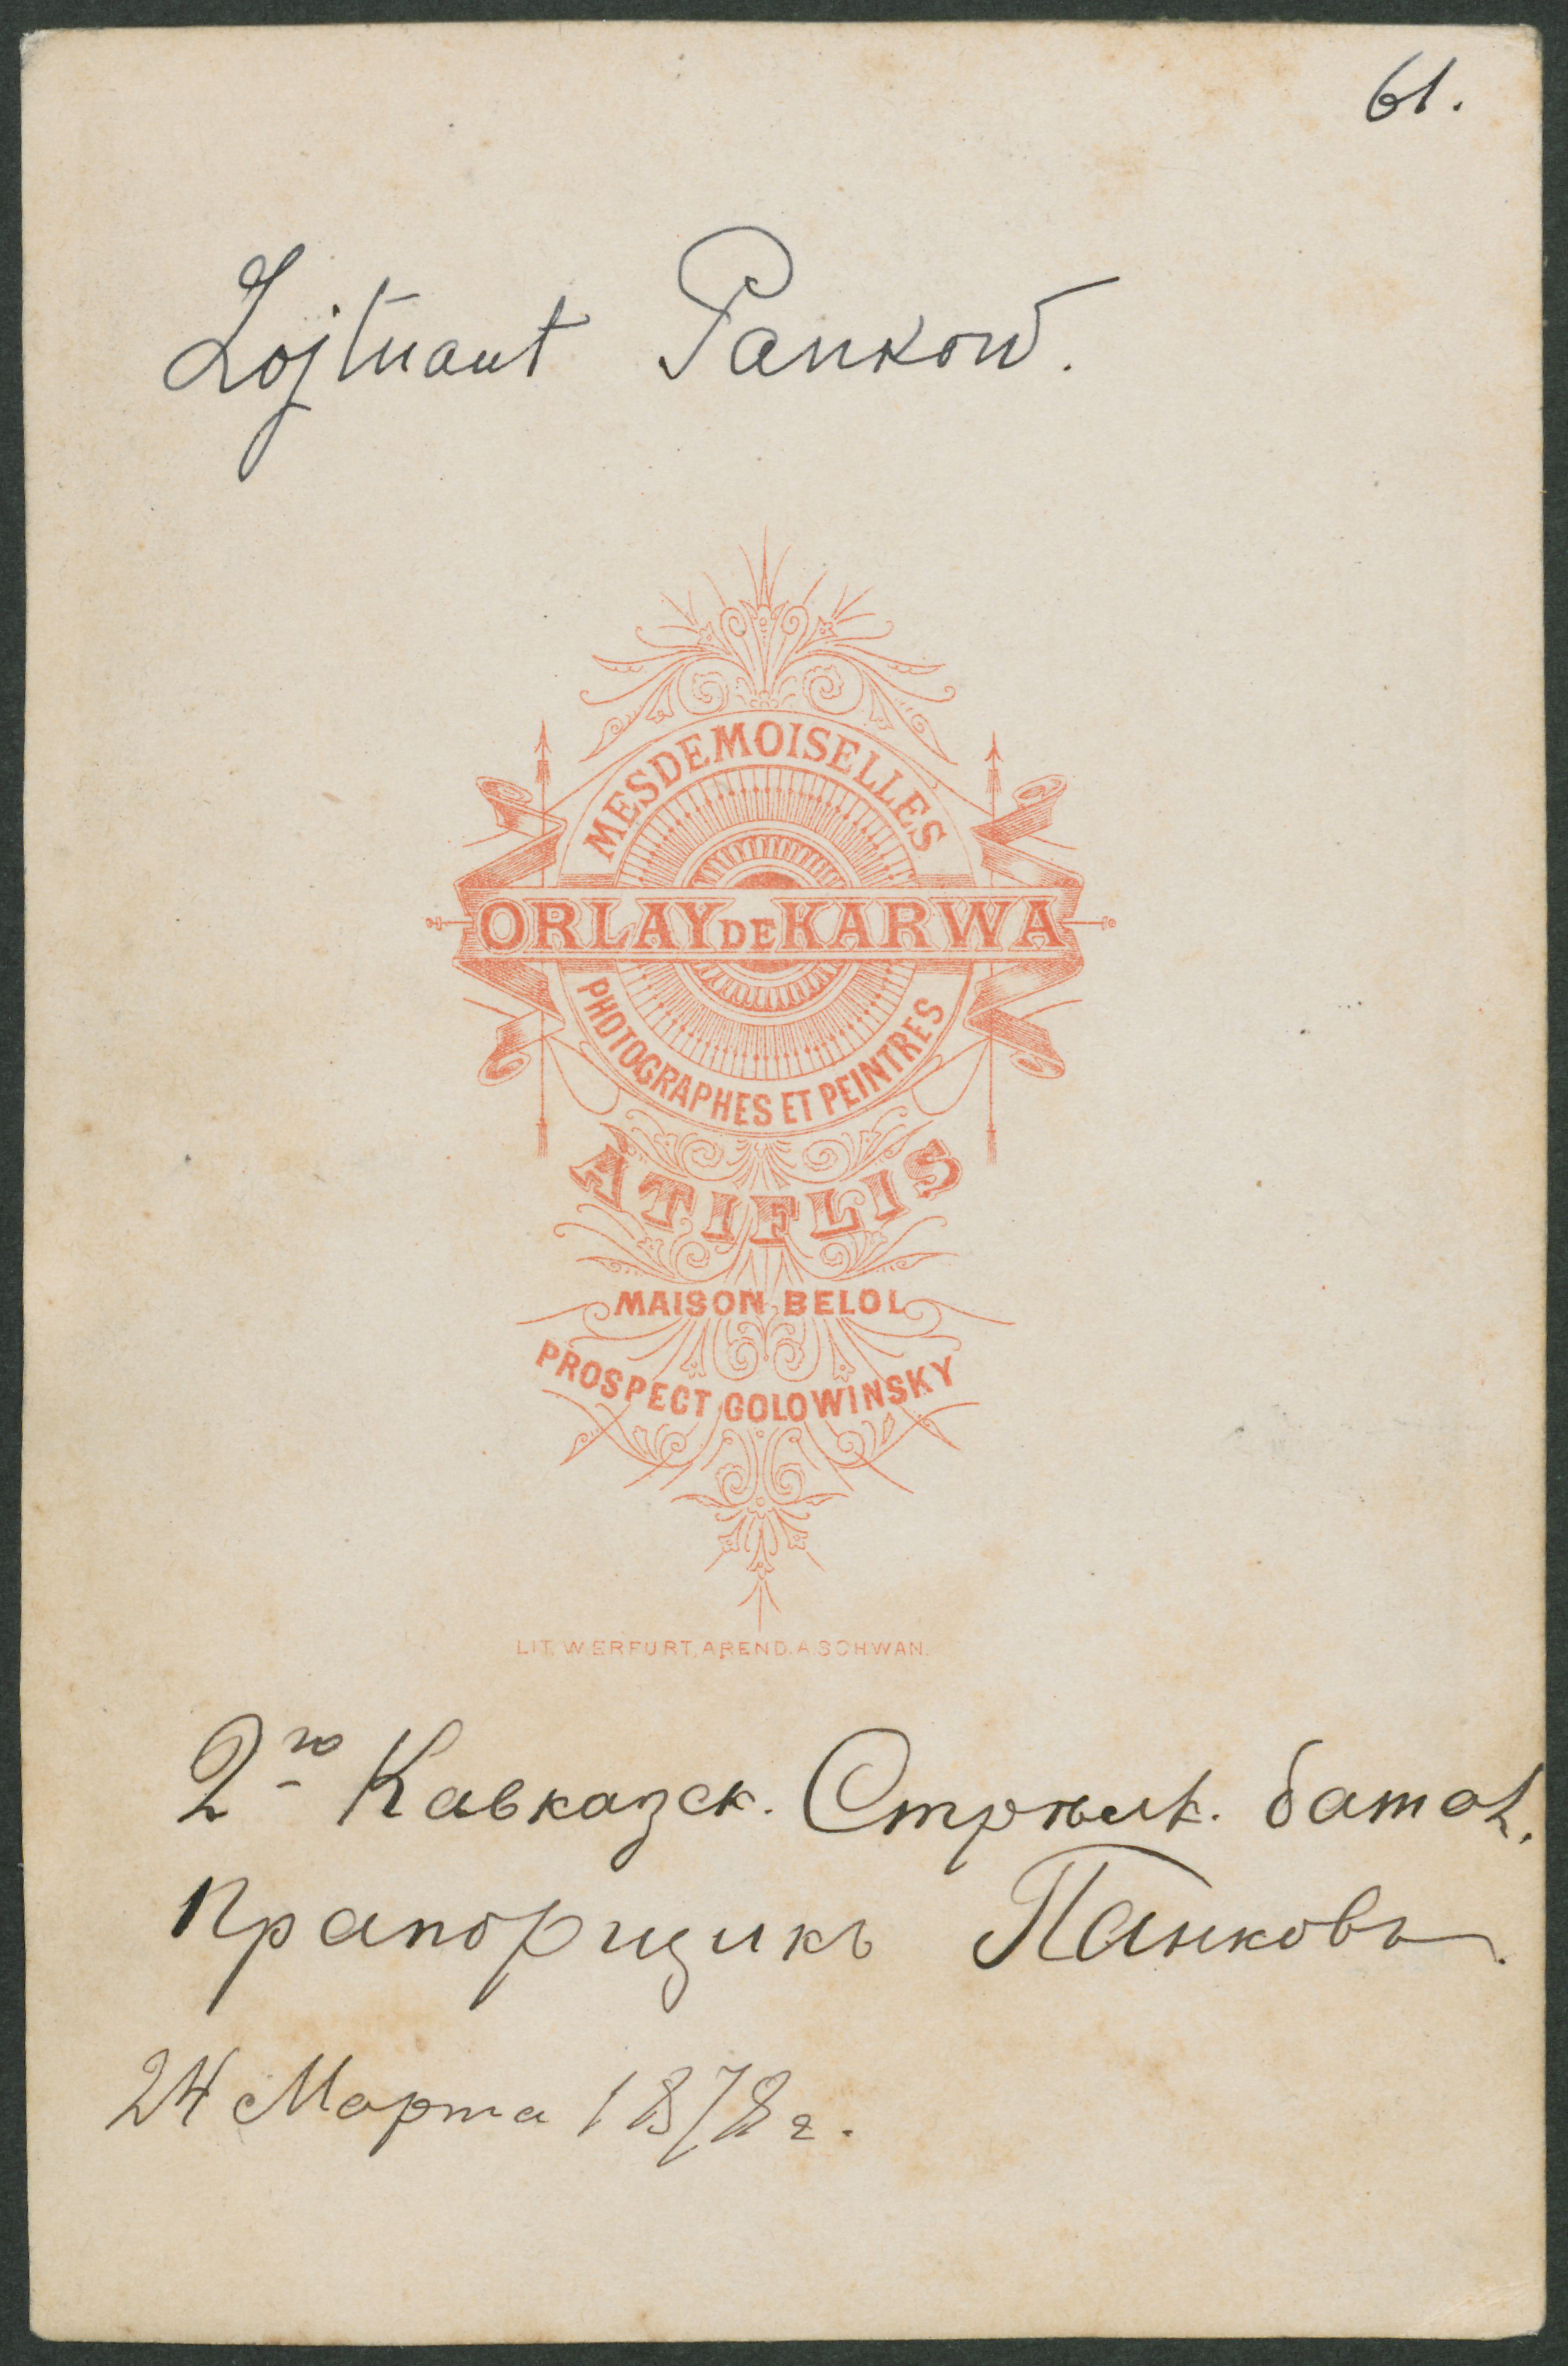 61.
Lojtnant Pankow.
MESDEMOISELLES
ORLAY DE KARWA
PHOTOGRAPHES ET PEINTRES
À TIFLIS
MAISON BELOI
PROSPECT GOLOWINSKY
LIT. W. ERFURT, AREND. A. SCHWAN.
2го Кавказск. Стрѣлк. батал.
Прапорщикъ Панковъ.
24 Марта 1878 г.